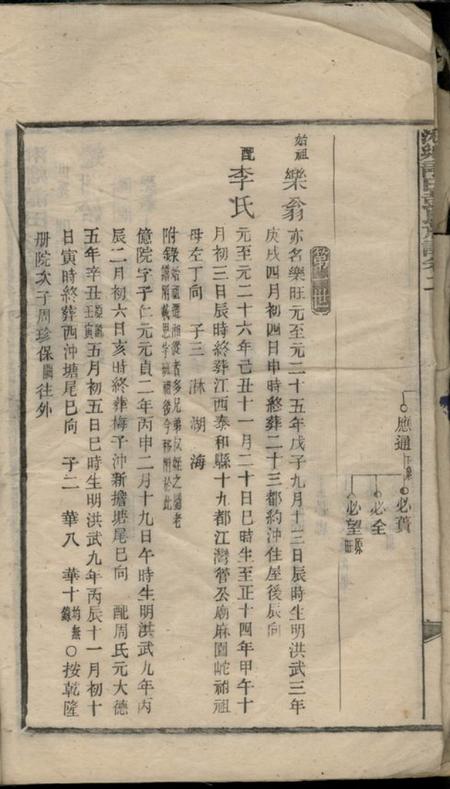 應通
必賁
必全
必望
第一世
始祖 樂翁 亦名樂旺元至元二十五年戊子九月十三日辰時生明洪武三年
庚戌四月初四日申時終葬二十三都約沖住屋後辰向
配 李氏 元至元二十六年己丑十一月二十日巳時生至正十四年甲午十
月初三日辰時終葬江西泰和縣十九都江灣管公廟麻園蛇祔祖
母左丁向 子三 淋 湖 海
附錄
億院字子仁元元貞二年丙申二月十九日午時生明洪武九年丙
辰二月初六日亥時終葬梅子沖新擔塘尾巳向 配周氏元大德
五年辛丑五月初五日巳時生明洪武九年丙辰十一月初十
日寅時終葬西沖塘尾巳向 子二 華八 華十 〇按乾隆
册院次子周珍保往外